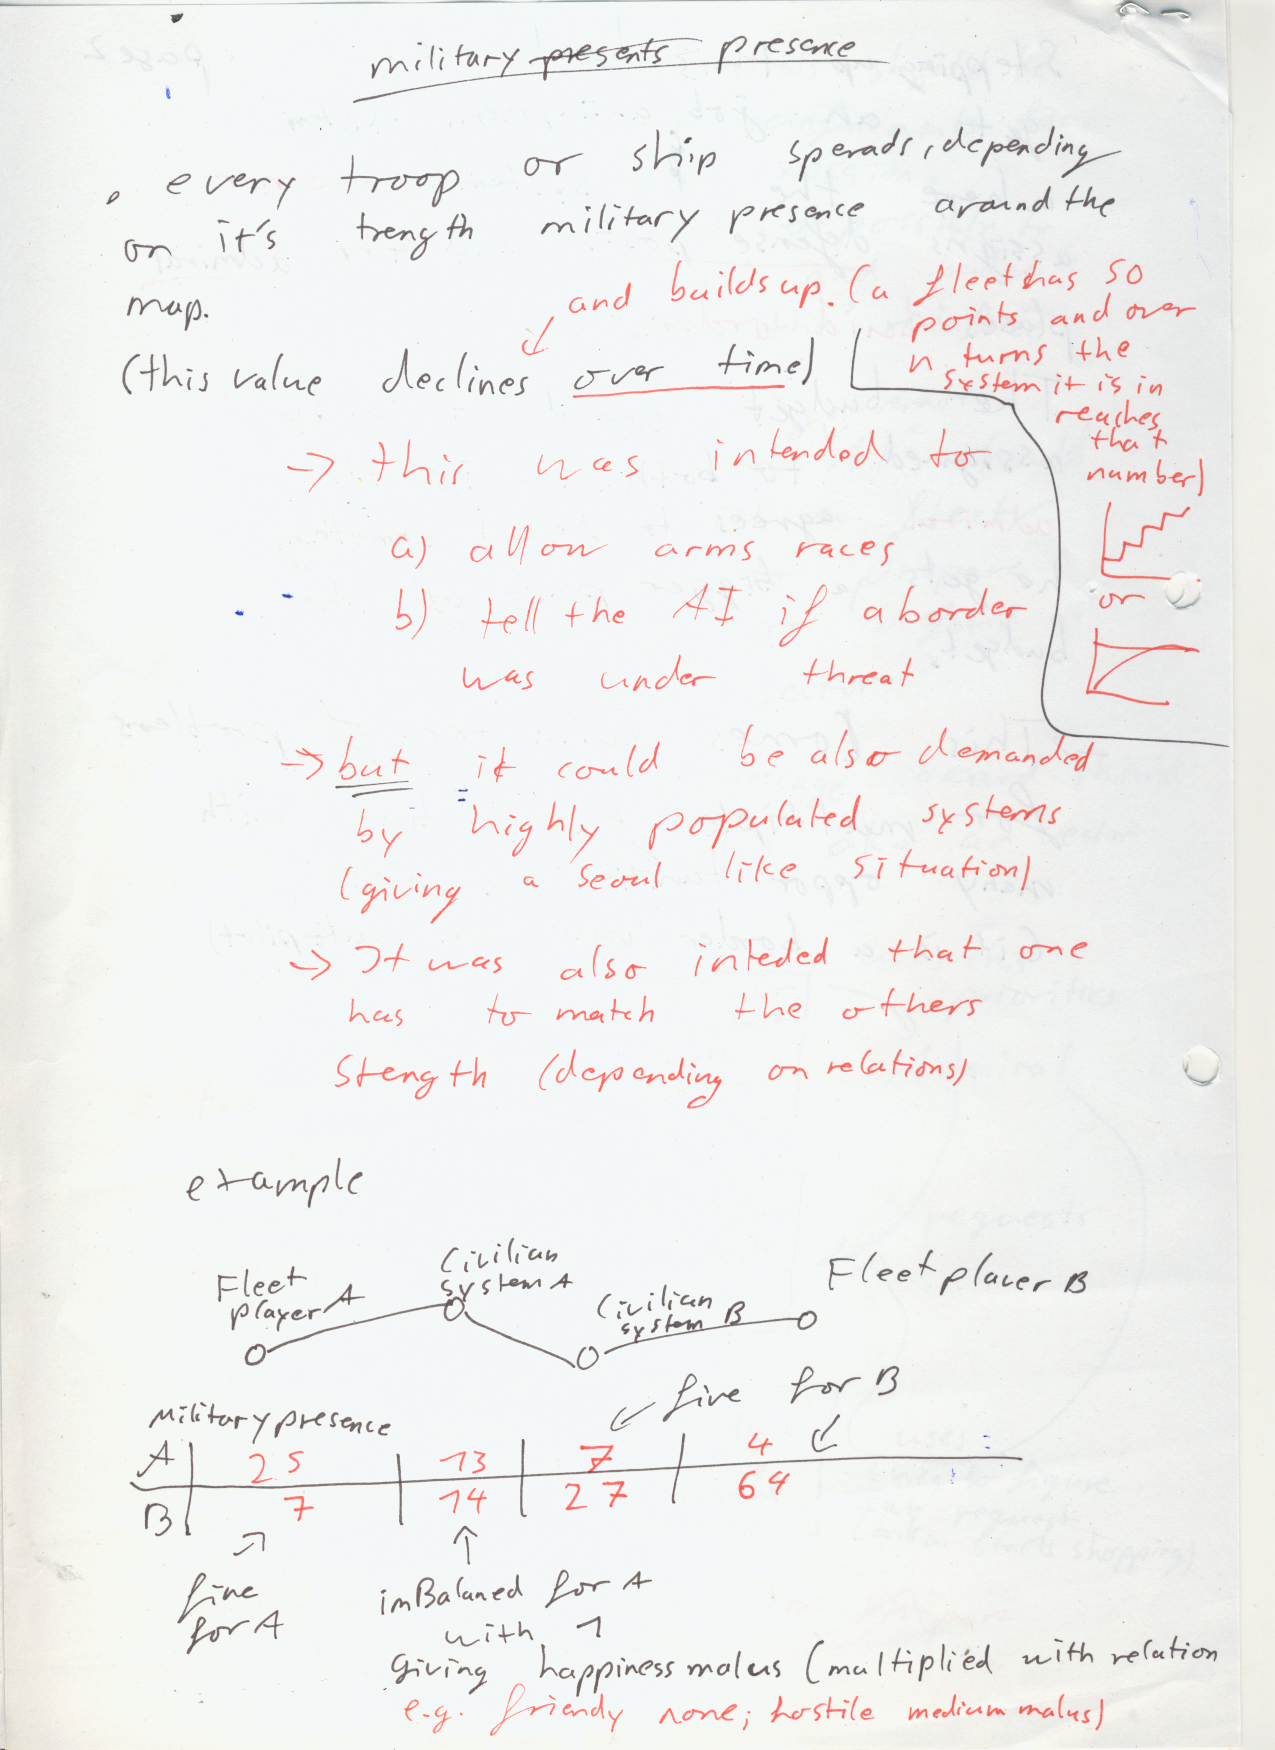 military presents presence
, every troop or ship sperads, depending
on it's trength military presence around the
map.
and builds up. (a fleet has 50
points and over
n turns the
system it is in
reaches
that
number)
(this value declines over time)
or
-> this was intended to
a) allow arms races
b) tell the AI if a border
was under threat
-> but it could be also demanded
by highly populated systems
(giving a Seoul like situation)
-> It was also inteded that one
has to match the others
Stength (depending on relations)
example
Fleet
player A
Civilian
system A
Civilian
system B
Fleet player B
Military presence
fine for B
A 25 13 7 4
B 7 14 27 64
fine
for A
imBalaned for A
with 1
giving happiness malus (multiplied with relation
e.g. friendly none; hostile medium malus)